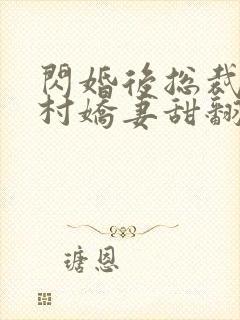 閃婚後總裁
村嬌妻甜翻
瑭恩